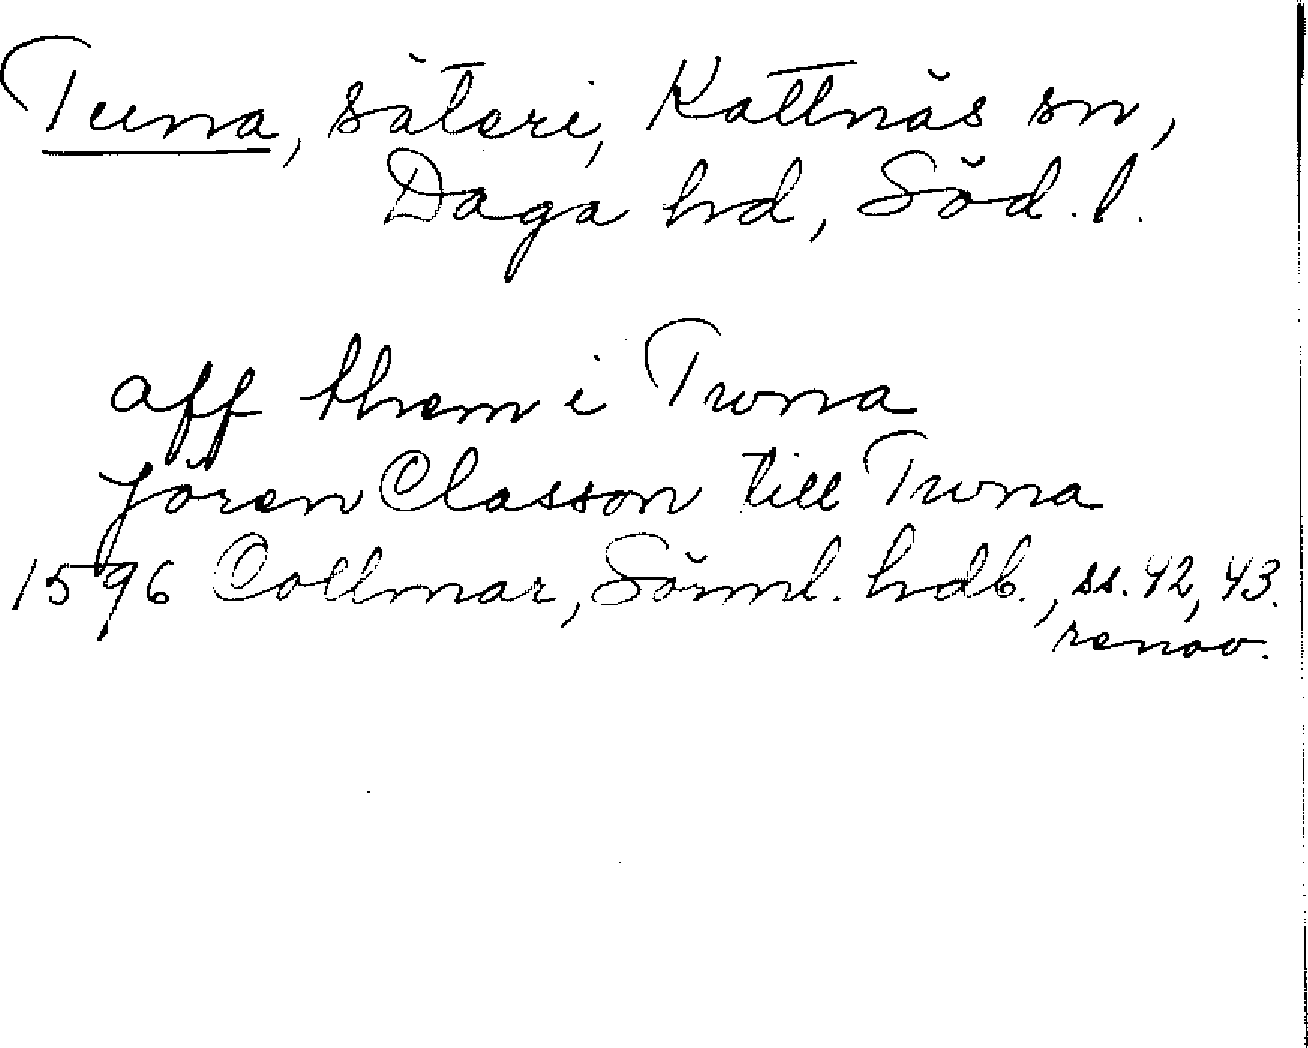 Tuna, säteri, Kattnäs sn,
Daga hd, Söd. l.
aff them i Twna
Jören Classon till Twna
1596 Collmar, Sörml. hdb., ss. 42, 43.
renov.